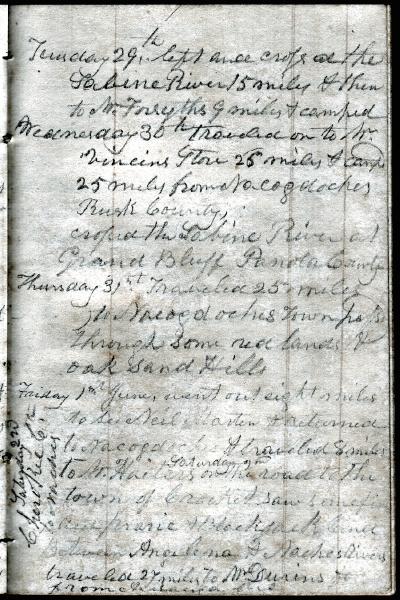 Tuesday 29th left and crossed the
Sabine River 15 miles & then
to Mr Forsyths 9 miles & camped
Wednesday 30th traveled on to Mr
Vincins Store 25 miles & camp
25 miles from Nacogdoches
Rusk County,
crossed the Sabine River at
Grand Bluff Panola County
Thursday 31st Traveled 25 miles
to Nacogdoches Town pass
through some red lands &
oak sand Hills
Friday 1st June, went out eight miles
to see Neil Martin & returned
to Nacogdoches & traveled 8 miles
to Mr
Saturday 2nd
on the road to the
town of Crocket saw some
prarie & Black Jack land
between Angelina & Naches Rivers
traveled 27 miles to Mr
from
Saturday
2nd
to Naches